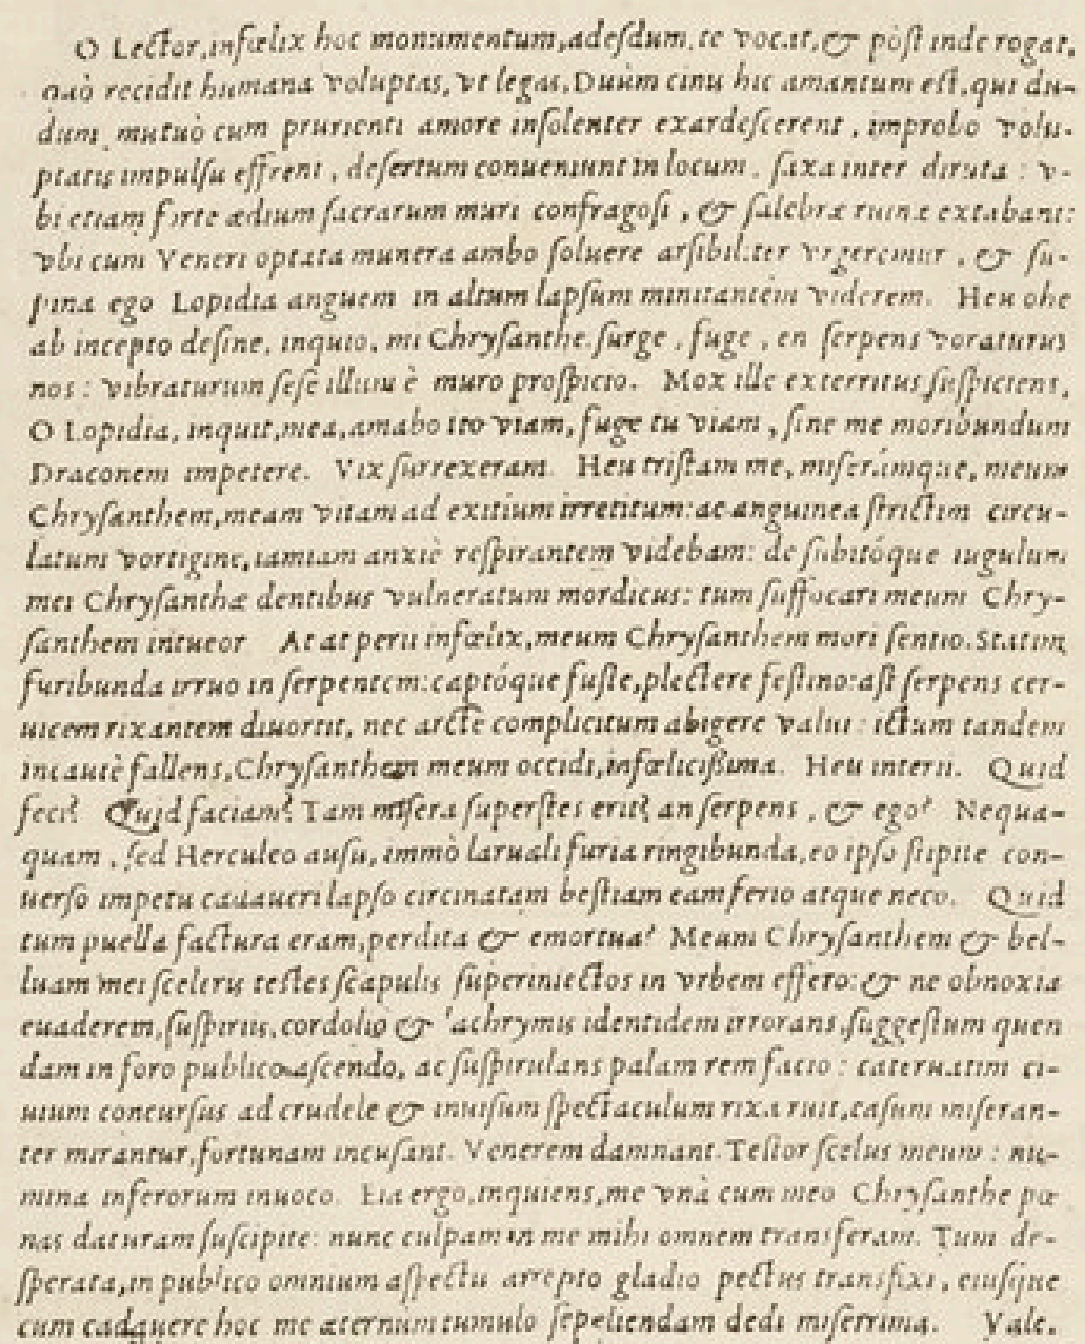 O Lector, infœlix hoc monumentum, adeſdum, te vocat, & pòſt inde rogat,
quò recidit humana voluptas, vt legas. Duûm cinis hic amantum eſt, qui du-
dum mutuò cum prurienti amore inſolenter exardeſcerent, improbo volu-
ptatis impulſu effreni, deſertum conueniunt in locum, ſaxa inter diruta: v-
bi etiam forte ædium ſacrarum muri confragoſi, & ſalebræ ruinæ extabant:
vbi cum Veneri optata munera ambo ſoluere arſibiliter vrgeremur, & ſu-
pina ego Lopidia anguem in altum lapſum minitantem viderem. Heu ohe
ab incepto deſine, inquio, mi Chryſanthe, ſurge, fuge, en ſerpens voraturus
nos: vibraturum ſeſe illum è muro proſpicio. Mox ille exterritus ſuſpiciens,
O Lopidia, inquit, mea, amabo ito viam, fuge tu viam, ſine me moribundum
Draconem impetere. Vix ſurrexeram. Heu triſtam me, miserámque, meum
Chryſanthem, meam vitam ad exitium irretitum: ac anguinea ſtrictim circu-
latum vortigine, iamiam anxiè reſpirantem videbam: de ſubitóque iugulum
mei Chryſanthæ dentibus vulneratum mordicus: tum ſuffocari meum Chry-
ſanthem intueor At at perii infœlix, meum Chryſanthem mori ſentio. Statim
furibunda irruo in ſerpentem: captóque fuſte, plectere feſtino: aſt ſerpens cer-
uicem rixantem diuortit, nec arcte complicitum abigere valui: ictum tandem
incautè fallens, Chryſanthem meum occidi, infœliciſſima. Heu interii. Quid
feci? Quid faciam? Tam miſera ſuperſtes erit? an ſerpens, & ego? Nequa-
quam, ſed Herculeo auſu, immò laruali furia ringibunda, eo ipſo ſtipite con-
uerſo impetu cadaueri lapſo circinatam beſtiam eam ferio atque neco. Quid
tum puella factura eram, perdita & emortua? Meum Chryſanthem & bel-
luam mei ſceleris teſtes ſcapulis ſuperiniectos in vrbem effero: & ne obnoxia
euaderem, ſuſpiriis, cordolio & lachrymis identidem irrorans, ſuggeſtum quen
dam in foro publico aſcendo, ac ſuſpirulans palam rem facio: cateruatim ci-
uium concurſus ad crudele & inuiſum ſpectaculum rixa ruit, caſum miſeran-
ter mirantur, fortunam incuſant. Venerem damnant. Teſtor ſcelus meum: nu-
mina inferorum inuoco. Eia ergo, inquiens, me vnà cum meo Chryſanthe pœ
nas daturam ſuſcipite: nunc culpam in me mihi omnem transferam. Tum de-
ſperata, in publico omnium aſpectu arrepto gladio pectus transfixi, eiuſque
cum cadauere hoc me æternùm tumulo ſepeliendam dedi miſerrima. Vale.